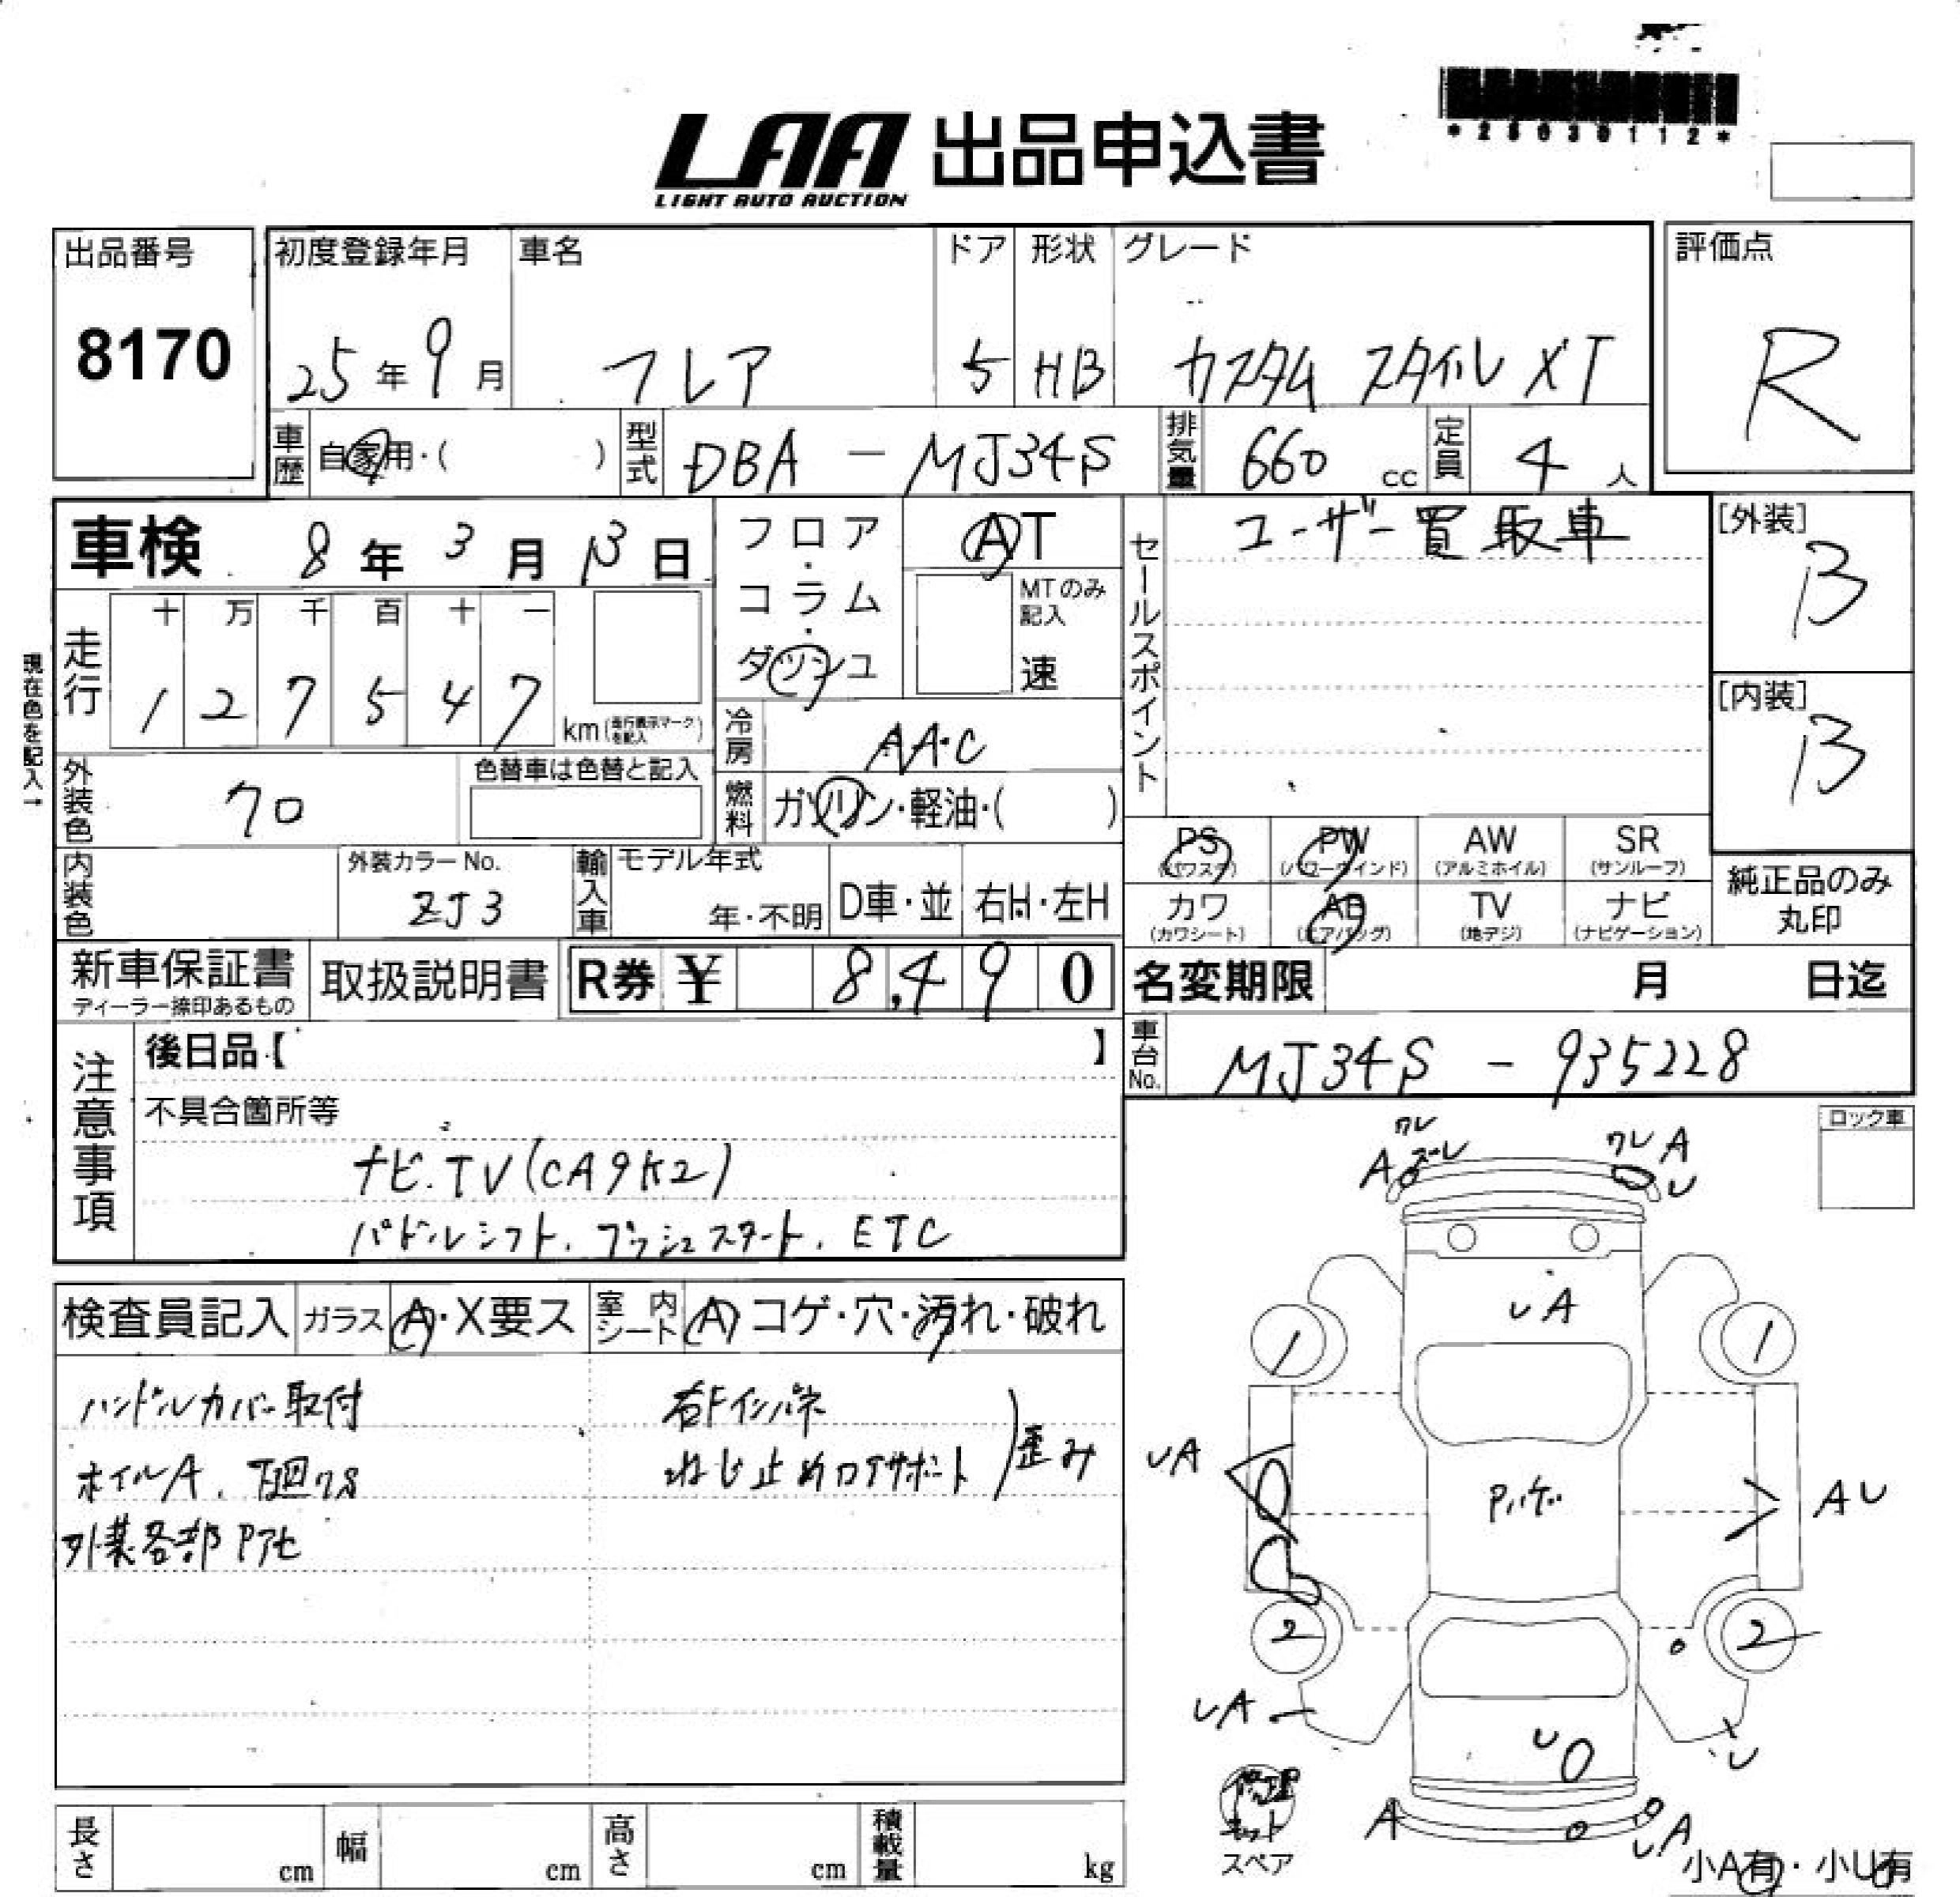 LAA 出品申込書
LIGHT AUTO AUCTION
*25030112*
出品番号
8170
初度登録年月
25年9月
車名
フレア
ドア
5
形状
HB
グレード
カスタムスタイル XT
評価点
R
車歴
自家用・( )
型式
DBA - MJ34S
排気量
660 cc
定員
4 人
車検 8年 3月 13日
フロア・コラム・ダッシュ
AT
MTのみ記入
速
セールスポイント
ユーザー買取車
[外装]
B
[内装]
B
現在色を記入→
走行
十 万 千 百 十 一
1 2 7 5 4 7
km(走行表示マークを記入)
冷房
AA・C
外装色
クロ
色替車は色替と記入
燃料
ガソリン・軽油・( )
内装色
外装カラーNo.
ZJ3
輸入車
モデル年式
年・不明
D車・並
右H・左H
PS
(パワステ)
PW
(パワーウインド)
AW
(アルミホイル)
SR
(サンルーフ)
カワ
(カワシート)
AB
(エアバッグ)
TV
(地デジ)
ナビ
(ナビゲーション)
純正品のみ
丸印
新車保証書
ディーラー捺印あるもの
取扱説明書
R券 ¥ 8,490
名変期限 月 日迄
車台No.
MJ34S - 935228
注意事項
後日品【 】
不具合箇所等
ナビ.TV(CA9K2)
パドルシフト、プッシュスタート、ETC
ロック車
ワレ
A ズレ
ワレ A
U
UA
1
1
UA
Pハゲ
AU
2
2
UA
U
U
A
UA
修理キット
スペア
小A有・小U有
検査員記入
ガラス
A・X要ス
室内シート
A コゲ・穴・汚れ・破れ
ハンドルカバー取付
ホイルA、下廻りS
外装各部Pアセ
右Fインパネ
ねじ止めコアサポート
歪み
長さ cm
幅 cm
高さ cm
積載量 kg